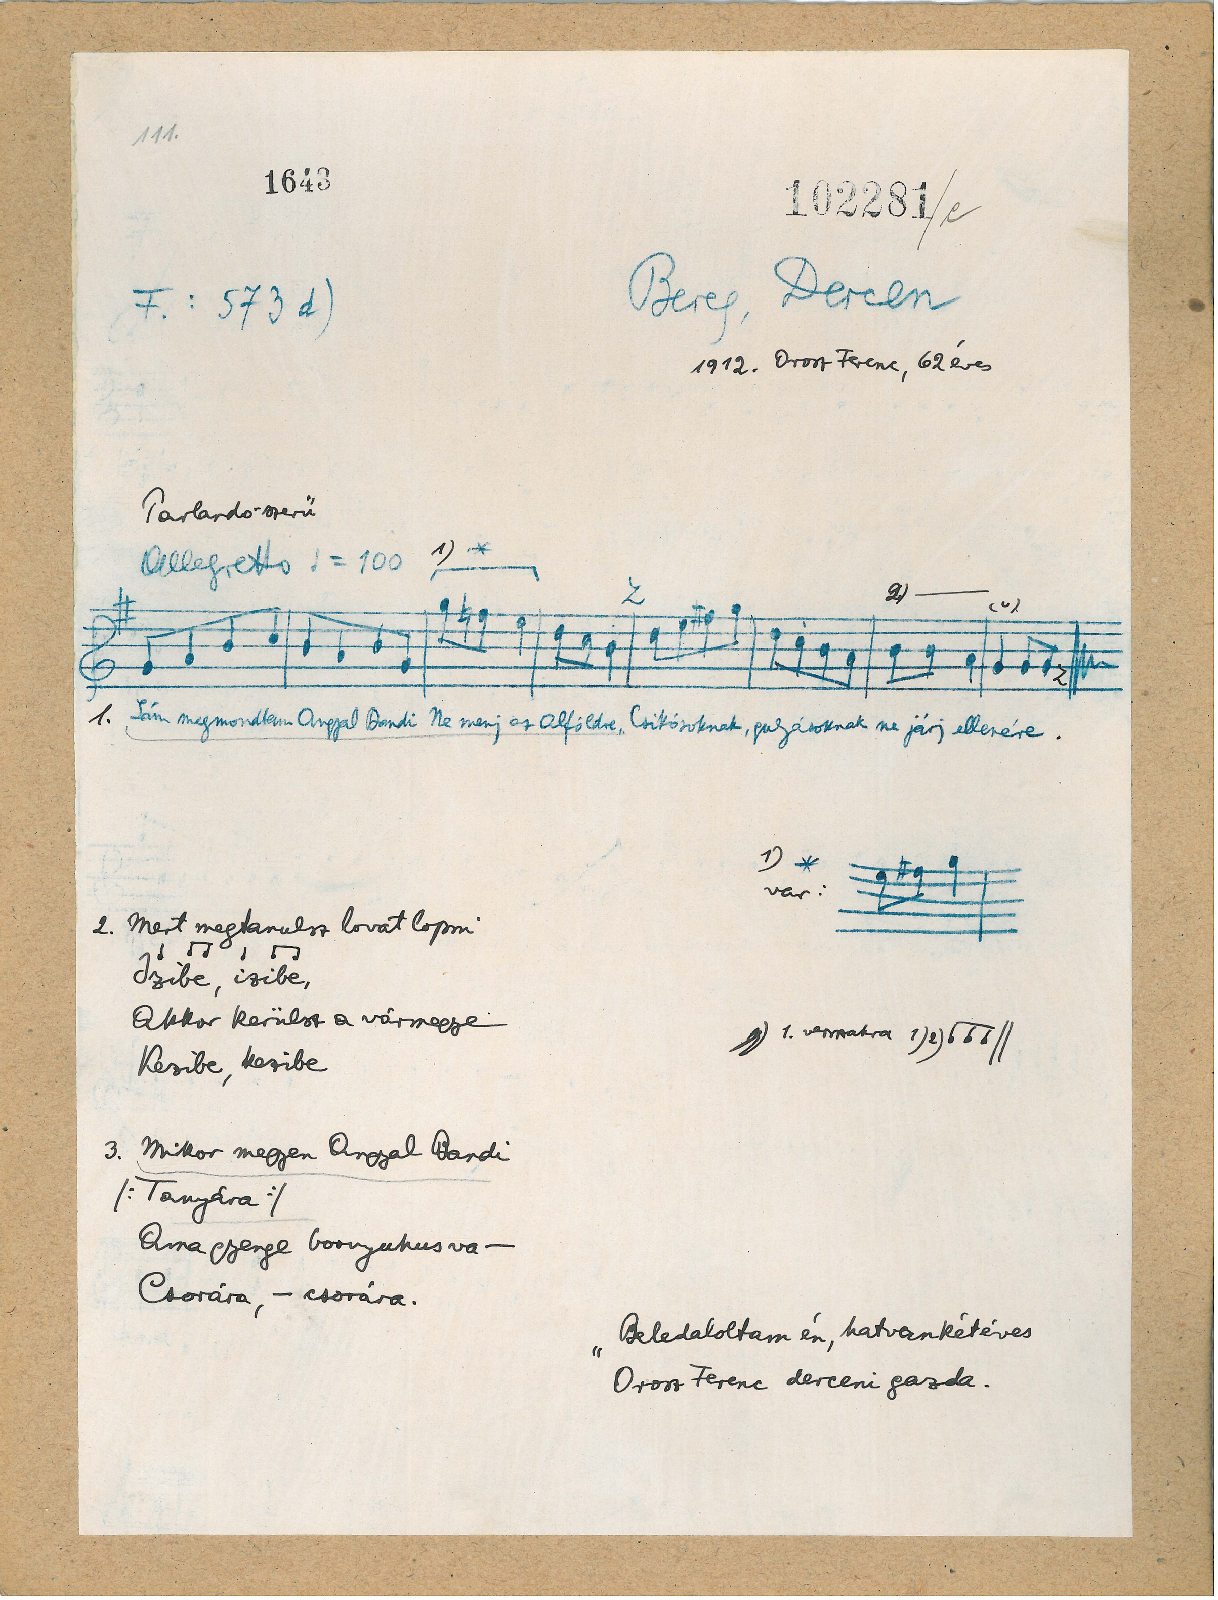 111.
1643
102281/c
F.: 573 d)
Bereg, Dercen
1912. Orosz Ferenc, 62 éves
Parlando-szerű
Allegretto ♩ = 100
1) *
2)
1. Lám megmondtam Angyal Bandi Ne menj az Alföldre, Csikósoknak, gulyásoknak ne járj ellenére.
1) *
var:
2. Mert megtanulsz lovat lopni
Izibe, izibe,
Akkor kerülsz a vármegye
Kezibe, kezibe
1. versszakra 1) 2)
3. Mikor megyen Angyal Bandi
/: Tanyára :/
Ama gyenge bornyuhus va—
Csorára, — csorára.
„Beledaloltam én, hatvankétéves
Orosz Ferenc derceni gazda.